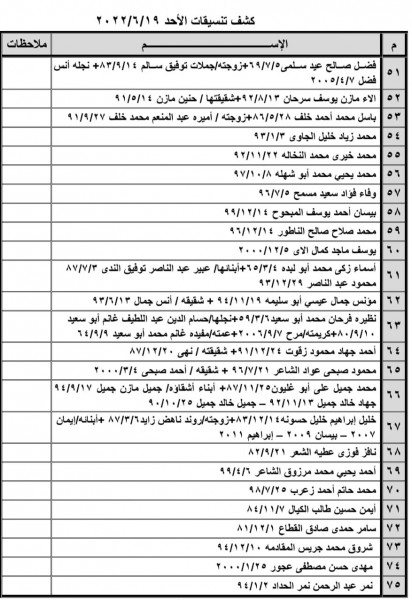 كشف تنسيقات الأحد ٢٠٢٢/٦/١٩
م الإســـــــم ملاحظات
٥١ فضل صالح عيد سلمى٦٩/٧/٥+زوجته/جملات توفيق سالم ٨٣/٩/١٤+ نجله أنس
فضل ٢٠٠٥/٤/٧
٥٢ الاء مازن يوسف سرحان ٩٢/٨/١٣+شقيقتها / حنين مازن ٩١/٥/١٤
٥٣ باسل محمد أحمد خلف ٨٦/٥/٢٨+زوجته / أميره عبد المنعم محمد خلف ٩١/٩/٢٧
٥٤ محمد زياد خليل الجاوى ٩٣/١/٣
٥٥ محمد خيرى محمد النخاله ٩٢/١١/٢٢
٥٦ محمد يحيي محمد أبو شهله ٩٧/١٠/٨
٥٧ وفاء فؤاد سعيد مسمح ٩٦/٧/٥
٥٨ بيسان أحمد يوسف المبحوح ٩٩/١٢/١٤
٥٩ محمد صلاح صالح الناطور ٩٦/١٢/١٤
٦٠ يوسف ماجد كمال الاى ٢٠٠٠/١٢/٥
٦١ أسماء زكى محمد أبو لبده ٦٥/٣/٤+أبنائها/ عبير عبد الناصر توفيق الندى ٨٧/٧/٣
محمود عبد الناصر ٩٣/١٢/٢٩
٦٢ مؤنس جمال عيسي أبو سليمه ٩٤/١١/١٩ + شقيقه / أنس جمال ٩٣/٦/١٣
٦٣ نظيره فرحان محمد أبو سعيد٥٩/٣/٦+نجلها/حسام الدين عبد اللطيف غانم أبو سعيد
٨٠/٩/١٠+كريمته/مرح ٢٠٠٦/٩/٧+عمته/مفيده غانم محمد أبو سعيد ٦٤/٩/٩
٦٤ أحمد جهاد محمود زقوت ٩١/١٢/٢٤+ شقيقته / نهى ٨٧/١٢/٢٠
٦٥ محمود صبحى عواد الشاعر ٩٦/٧/٢١ + شقيقه / أحمد صبحى ٢٠٠٠/٣/٤
٦٦ محمد جميل على أبو غليون٨٧/١١/٢٥+ أبناء أشقاؤه/ جميل مازن جميل ٩٤/٩/١٧
جهاد خالد جميل ٩٢/١١/١٣ – جميل خالد جميل ٩٠/١٠/٢٥
٦٧ خليل إبراهيم خليل حسونه٨٣/١٢/١٤+زوجته/روند ناهض زايد٨٧/٣/٦ +أبنانه/إيمان
٢٠٠٧ – بيسان ٢٠٠٩ – إبراهيم ٢٠١١
٦٨ نافز فوزى عطيه الشعر ٨٢/٩/٢١
٦٩ أحمد يحيي محمد مرزوق الشاعر ٩٩/٤/٦
٧٠ محمد حاتم أحمد زعرب ٩٨/٧/٢٥
٧١ أيمن حسين طالب الكيال ٨٤/١١/٧
٧٢ سامر حمدى صادق القطاع ٨١/١٢/١
٧٣ شروق محمد جريس المقادمه ٩٤/١٢/١٠
٧٤ مهدى حسن مصطفى عجور ٢٠٠٠/١/٢٥
٧٥ نمر عبد الرحمن نمر الحداد ٩٤/١/٢